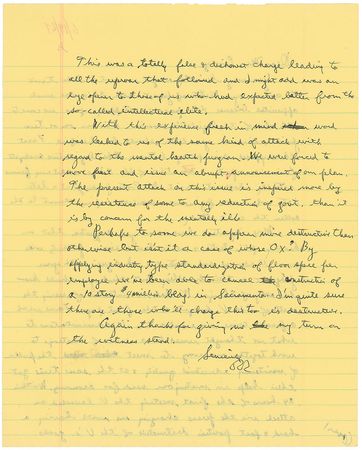 This was a totally false & dishonest charge leading to
all the uproar that followed and I might add was an
eye opener to those of us who had expected better from the
so-called intellectual elite.
With this experience fresh in mind word
was leaked to us of the same kind of attack with
regard to the mental health program. We were forced to
move fast and issue an abrupt announcement of our plan.
The present attack on this issue is inspired more by
the resistance of some to any reduction of govt. than it
is by concern for the mentally ill.
Perhaps to some we do appear more destructive than
otherwise but isn't it a case of whose Ox? By
applying industry type standardization of floor space per
employee we've been able to cancel construct of
a 10 story 4 million bldg in Sacramento. I'm quite sure
there are those who'll charge this too is destructive.
Again thanks for giving me my turn on
the witness stand.
Sincerely
RR